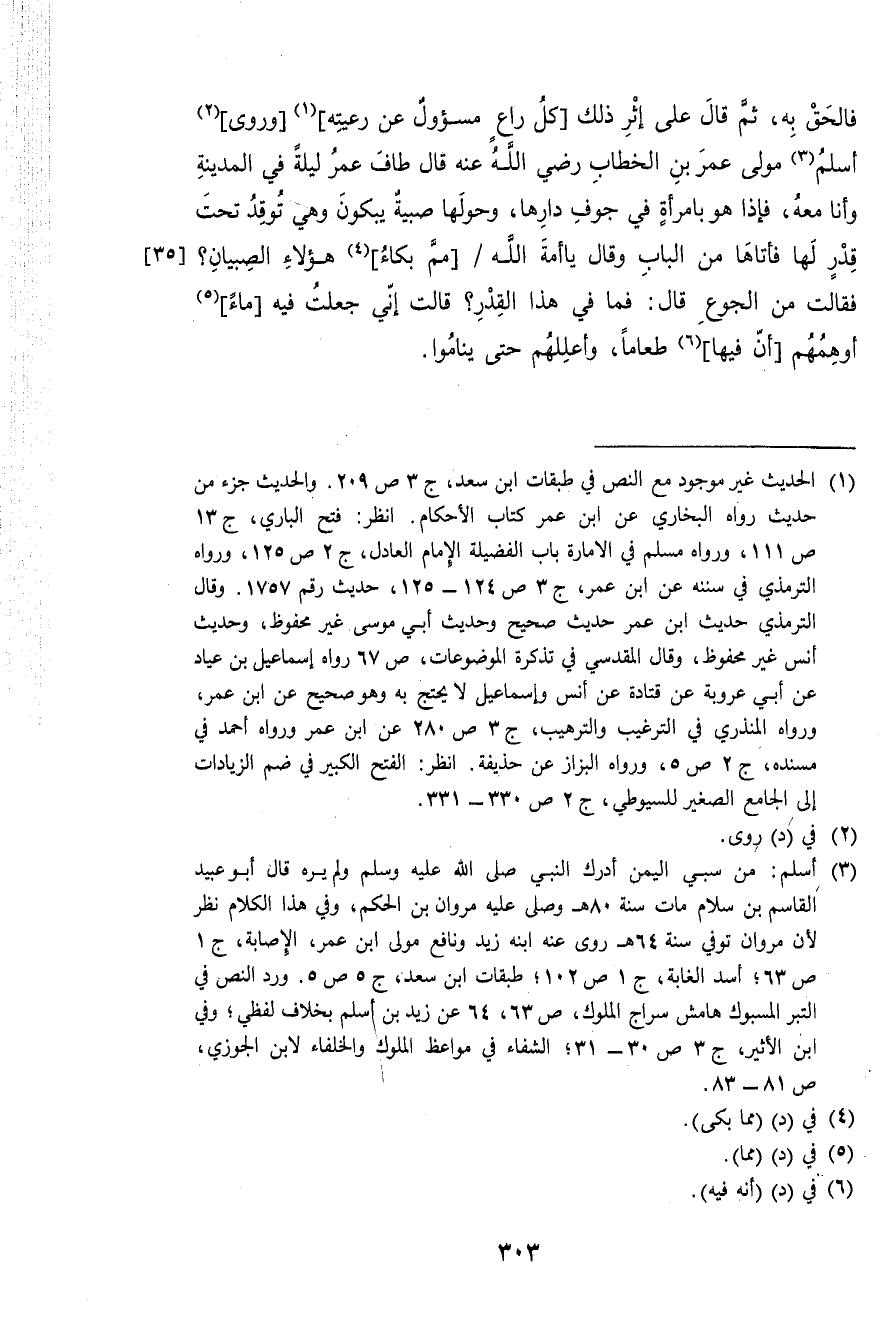 فالحَقْ بِه، ثمَّ قالَ على إثْرِ ذلك [كلُّ راعٍ مسؤولٌ عن رعيتِه]⁽١⁾ [وروى]⁽٢⁾
أسلمُ⁽٣⁾ مولى عمرَ بنِ الخطابِ رضي اللَّهُ عنه قال طافَ عمرُ ليلةً في المدينةِ
وأنا معهُ، فإذا هو بامرأةٍ في جوفِ دارِها، وحولَها صبيةٌ يبكونَ وهي تُوقِدُ تحتَ
قِدْرٍ لَها فأتاهَا من البابِ وقال ياأمةَ اللَّه / [ممَّ بكاءُ]⁽٤⁾ هؤلاءِ الصِبيانِ؟ [٣٥]
فقالت من الجوعِ قال: فما في هذا القِدْرِ؟ قالت إنّي جعلتُ فيه [ماءً]⁽٥⁾
أوهِمُهُم [أنّ فيها]⁽٦⁾ طعاماً، وأعللهُم حتى ينامُوا.
(١) الحديث غير موجود مع النص في طبقات ابن سعد، ج ٣ ص ٢٠٩. والحديث جزء من
حديث رواه البخاري عن ابن عمر كتاب الأحكام. انظر: فتح الباري، ج ١٣
ص ١١١، ورواه مسلم في الامارة باب الفضيلة الإمام العادل، ج ٢ ص ١٢٥، ورواه
الترمذي في سننه عن ابن عمر، ج ٣ ص ١٢٤ ــ ١٢٥، حديث رقم ١٧٥٧. وقال
الترمذي حديث ابن عمر حديث صحيح وحديث أبي موسى غير محفوظ، وحديث
أنس غير محفوظ، وقال المقدسي في تذكرة الموضوعات، ص ٦٧ رواه إسماعيل بن عياد
عن أبي عروبة عن قتادة عن أنس وإسماعيل لا يحتج به وهو صحيح عن ابن عمر،
ورواه المنذري في الترغيب والترهيب، ج ٣ ص ٢٨٠ عن ابن عمر ورواه أحمد في
مسنده، ج ٢ ص ٥، ورواه البزاز عن حذيفة. انظر: الفتح الكبير في ضم الزيادات
إلى الجامع الصغير للسيوطي، ج ٢ ص ٣٣٠ ــ ٣٣١.
(٢) في (د) روى.
(٣) أسلم: من سبي اليمن أدرك النبي صلى الله عليه وسلم ولم يره قال أبو عبيد
القاسم بن سلام مات سنة ٨٠هـ وصلى عليه مروان بن الحكم، وفي هذا الكلام نظر
لأن مروان توفي سنة ٦٤هـ روى عنه ابنه زيد ونافع مولى ابن عمر، الإصابة، ج ١
ص ٦٣؛ أسد الغابة، ج ١ ص ١٠٢؛ طبقات ابن سعد، ج ٥ ص ٥. ورد النص في
التبر المسبوك هامش سراج الملوك، ص ٦٣، ٦٤ عن زيد بن أسلم بخلاف لفظي؛ وفي
ابن الأثير، ج ٣ ص ٣٠ ــ ٣١؛ الشفاء في مواعظ الملوك والخلفاء لابن الجوزي،
ص ٨١ ــ ٨٣.
(٤) في (د) (مما بكى).
(٥) في (د) (مما).
(٦) في (د) (أنه فيه).
٣٠٣